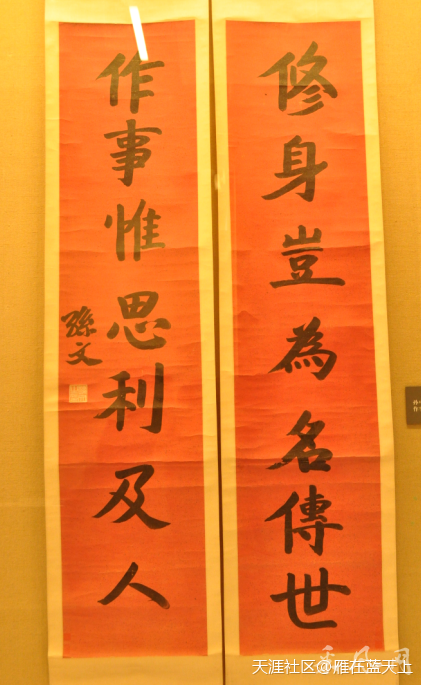 修身豈為名傳世
作事惟思利及人
孫文
天涯社区@雁在蓝天上